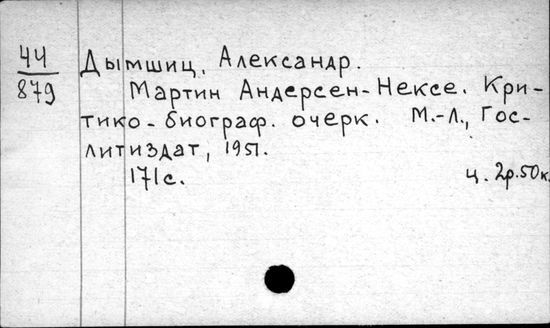 44 Дымшиц, Александр.
879 Мартин Андерсен-Нексе. Кри-
тико-биограф. очерк. М.-Л., Гос-
литиздат, 1951.
171с. ц. 2р.50к.